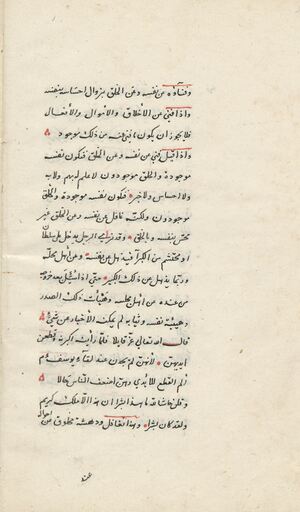 وفناؤه عن نفسه وعن الخلق بزوال احساسه بنفسه
واذا فني عن الأخلاق والأحوال والأفعال
فلا يجوز ان يكون ما فني عنه من ذلك موجودا
واذا قيل فني عن نفسه وعن الخلق فتكون نفسه
موجودة والخلق موجودون لا علم لهم ولا به
ولا احساس ولا خبر فتكون نفسه موجودة والخلق
موجودون ولكنه غافل عن نفسه وعن الخلق غير
محس بنفسه وبالخلق وقد ترى الرجل يدخل على سلطان
او محتشم من اكبر فيذهل عن نفسه وعن اهل مجلسه
وربما يذهل عن ذلك الكبير حتى اذا سئل بعد خروجه
من عنده عن اهل مجلسه وهيئات ذلك الصدر
وهيئة نفسه وثيابه لم يمكنه الاخبار عن شيء
قال الله تعالى عز قائلا فلما رأينه اكبرنه وقطعن
ايديهن لانهن لم يجدن عند لقاء يوسف
الم القطع للايدي وهن اضعف الناس حالا
وقلن حاشا لله ما هذا بشرا ان هذا الا ملك كريم
ولقد كان بشرا وهذا تغافل ودهشة مخلوق عن احواله
عند